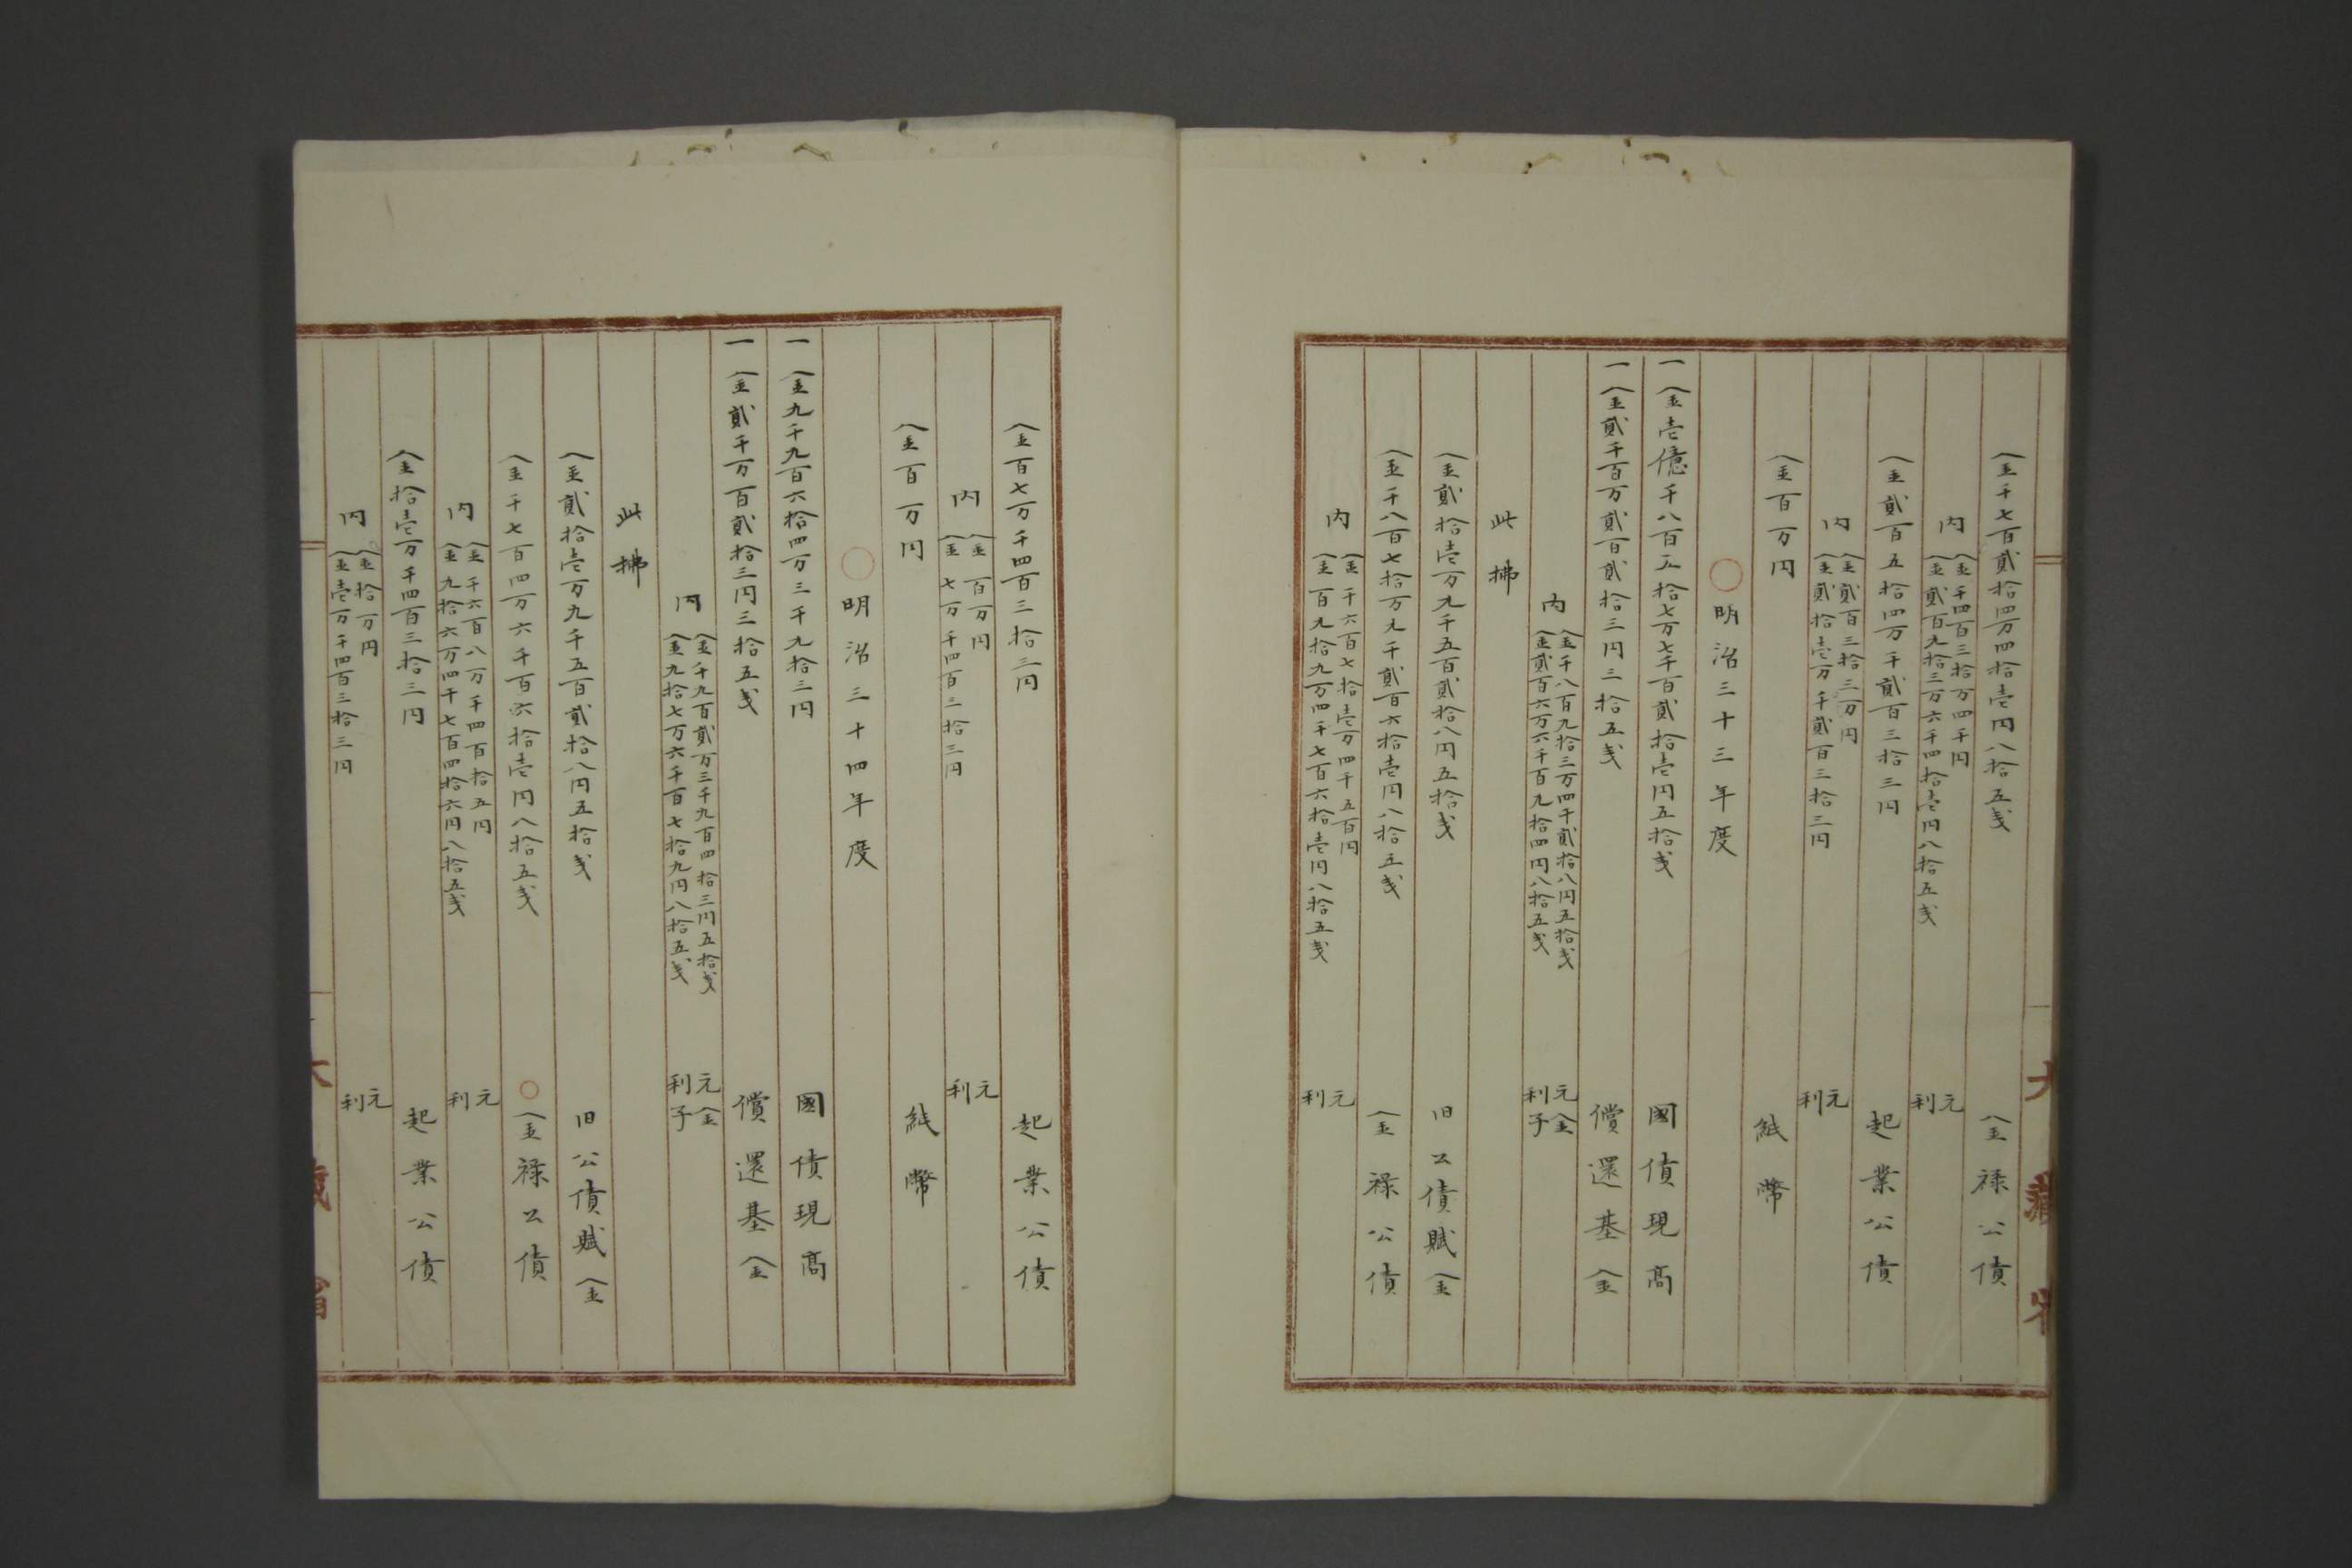 金千七百貳拾四万四拾壱円八拾五戋 金禄公債
内 金千四百三拾万四千円 元
金貳百九拾三万六千四拾壱円八拾五戋 利
金貳百五拾四万千貳百三拾三円 起業公債
内 金貳百三拾三万円 元
金貳拾壱万千貳百三拾三円 利
金百万円 紙幣
○明治三十三年度
一金壱億千八百五拾七万七千百貳拾壱円五拾戋 國債現高
一金貳千百万貳百貳拾三円三拾五戋 償還基金
内 金千八百九拾三万四千貳拾八円五拾戋 元金
金貳百六万六千百九拾四円八拾五戋 利子
此拂
金貳拾壱万九千五百貳拾八円五拾戋 旧公債賦金
金千八百七拾万九千貳百六拾壱円八拾五戋 金禄公債
内 金千六百七拾壱万四千五百円 元
金百九拾九万四千七百六拾壱円八拾五戋 利
金百七万千四百三拾三円 起業公債
内 金百万円 元
金七万千四百三拾三円 利
金百万円 紙幣
○明治三十四年度
一金九千九百六拾四万三千九拾三円 國債現高
一金貳千万百貳拾三円三拾五戋 償還基金
内 金千九百貳万三千九百四拾三円五拾戋 元金
金九拾七万六千百七拾九円八拾五戋 利子
此拂
金貳拾壱万九千五百貳拾八円五拾戋 旧公債賦金
金千七百四万六千百六拾壱円八拾五戋 ○金禄公債
内 金千六百八万千四百拾五円 元
金九拾六万四千七百四拾六円八拾五戋 利
金拾壱万千四百三拾三円 起業公債
内 金拾万円 元
金壱万千四百三拾三円 利